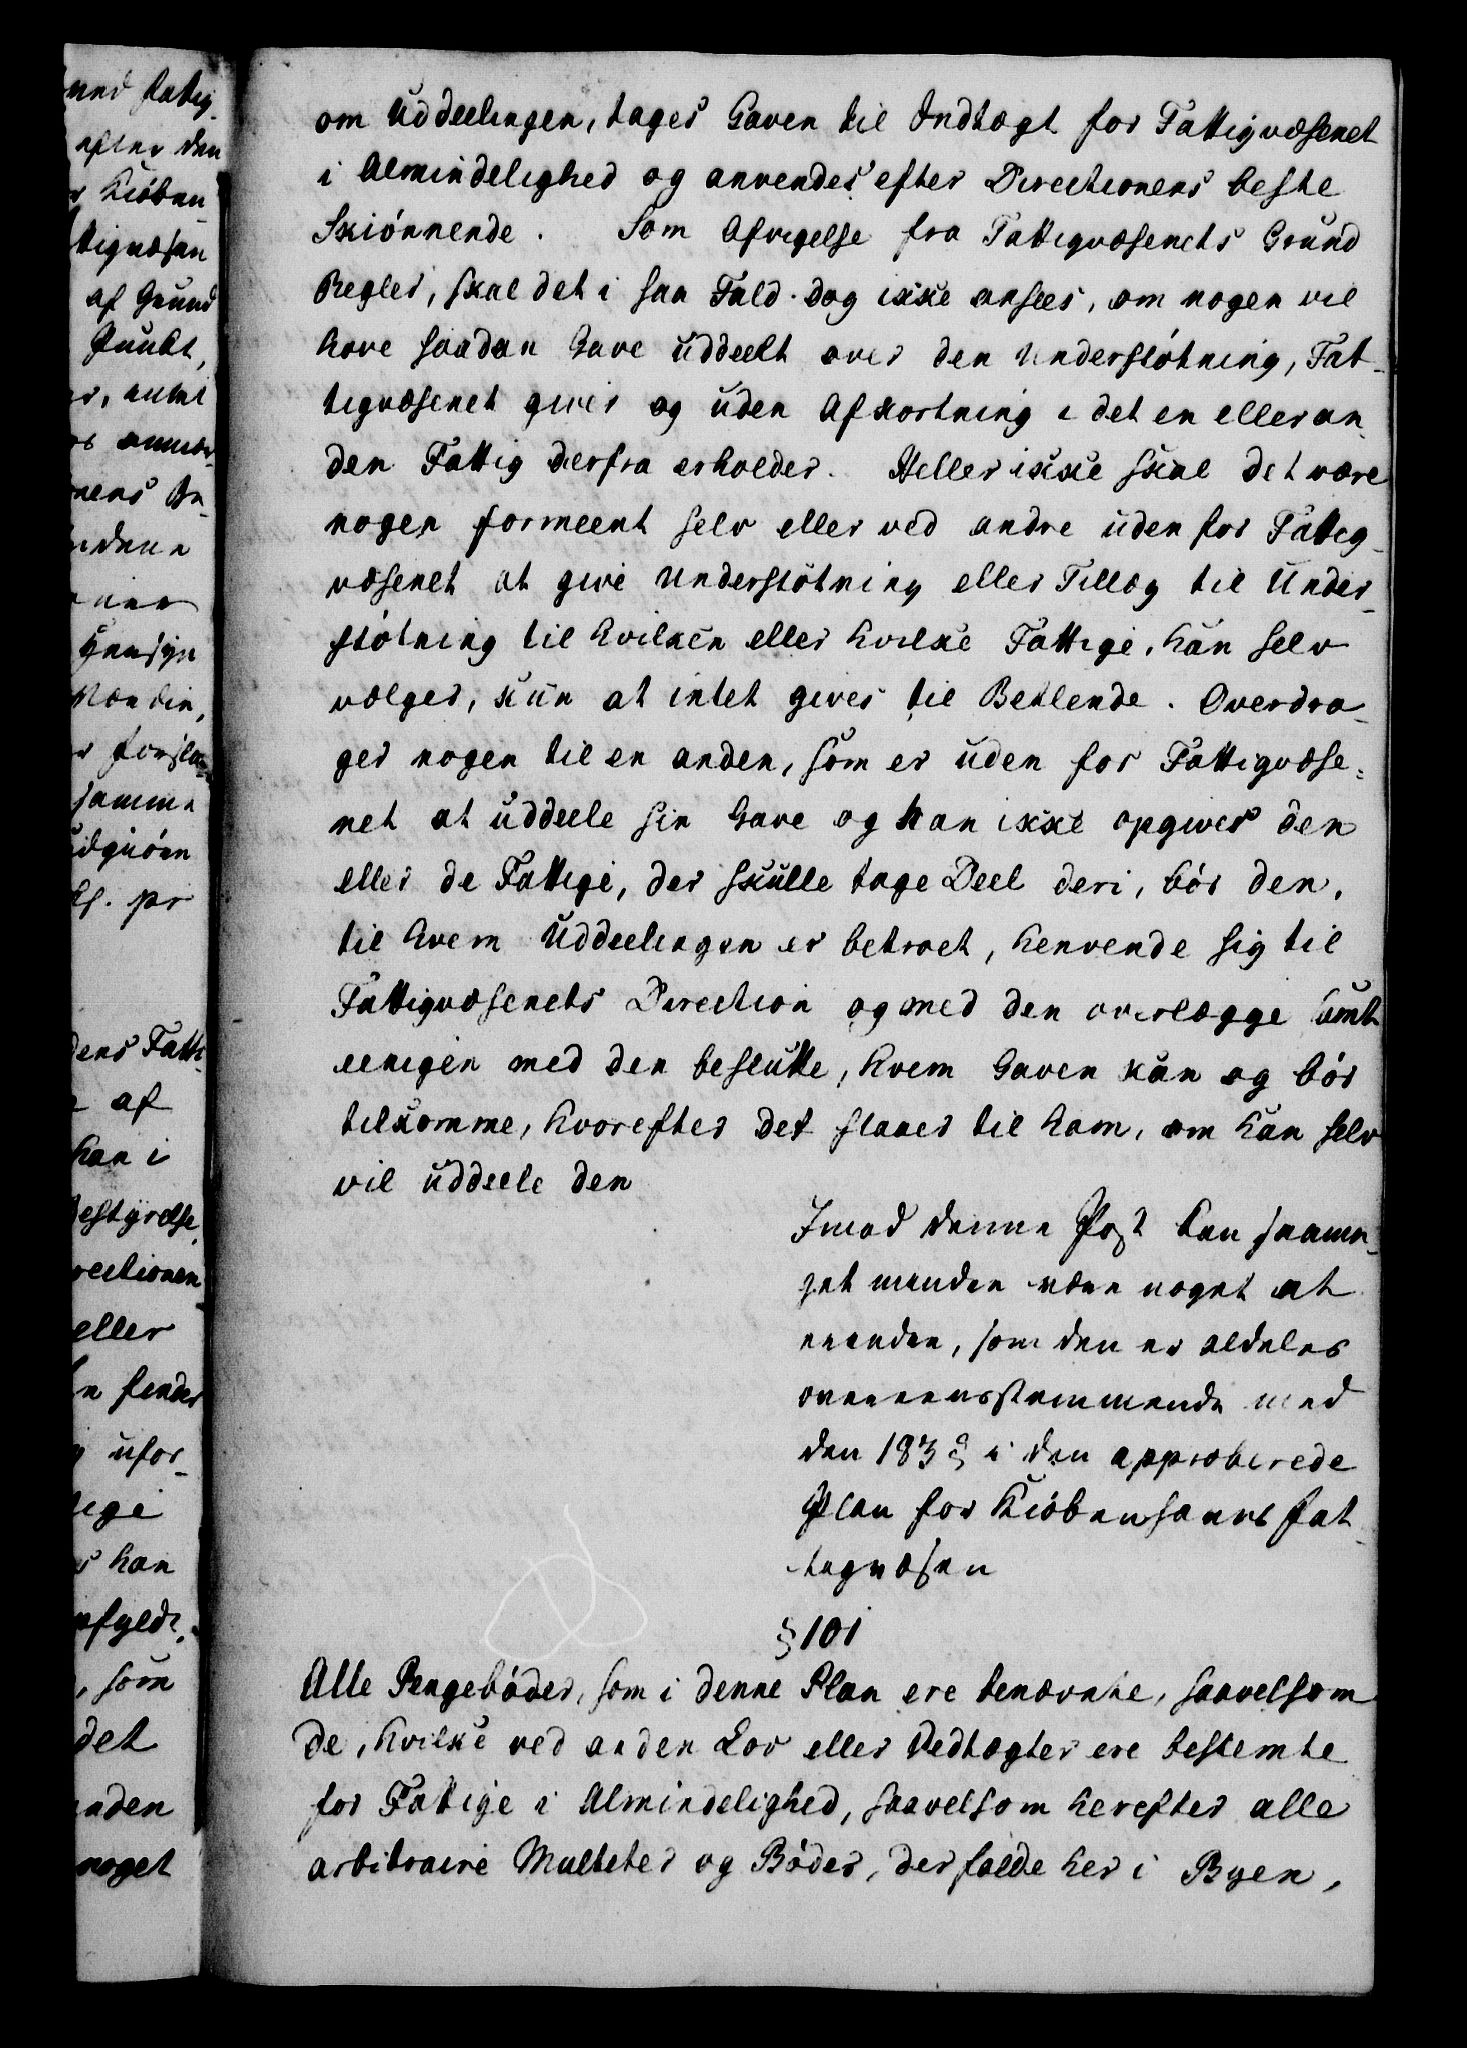 om Uddeelingen, tages Gaven til Indtægt for Fattigvæsenet
i Almindelighed og anvendes efter Directionens beste
Skiónnende. Som Afvigelse fra Fattigvæsenets Grund
Regler, skal det i saa Fald dog ikke ansees, om nogen vil
have saadan Gave uddeelt over den Understótning, Fat-
tigvæsenet giver og uden Afkortning i det en eller an-
den Fattig derfra erholder. Heller ikke skal det være
nogen formeent selv eller ved andre uden for Fattig-
væsenet at give Understótning eller Tillæg til Under-
stótning til hvilken eller hvilke Fattige, han selv
vælger, kun at intet gives til Betlende. Overdra-
ger nogen til en anden, som er uden for Fattigvæse-
net at uddeele sin Gave og han ikke opgiver den
eller de Fattige, der skulle tage Deel deri, bór den,
til hvem Uddeelingen er betroet, henvende sig til
Fattigvæsenets Direction og med den overlægge samt
eenigen med den beslutte, hvem Gaven kan og bór
tilkomme, hvorefter det staaer til ham, om han selv
vil uddeele den
Imod denne Post kan saame-
get mindre være noget at
erindre, som den er aldeles
overeensstemmende med
den 183 § i den approberede
Plan for Kióbenhavns Fat-
tigvæsen
§ 101
Alle Pengebóder, som i denne Plan ere benævnte, saavelsom
de, hvilke ved anden Lov eller Vedtægter ere bestemte
for Fattige i Almindelighed, saavelsom herefter alle
arbitraire Mulcter og Bóder, der falde her i Byen,
und fattig-
efter den
Kióben-
ttigvæsen
af Grund
Punkt,
dens Fatti-
af
han i
estyrelse,
rectionen
eller
finder
ufor-
tige
han
, som
det
anden
noget